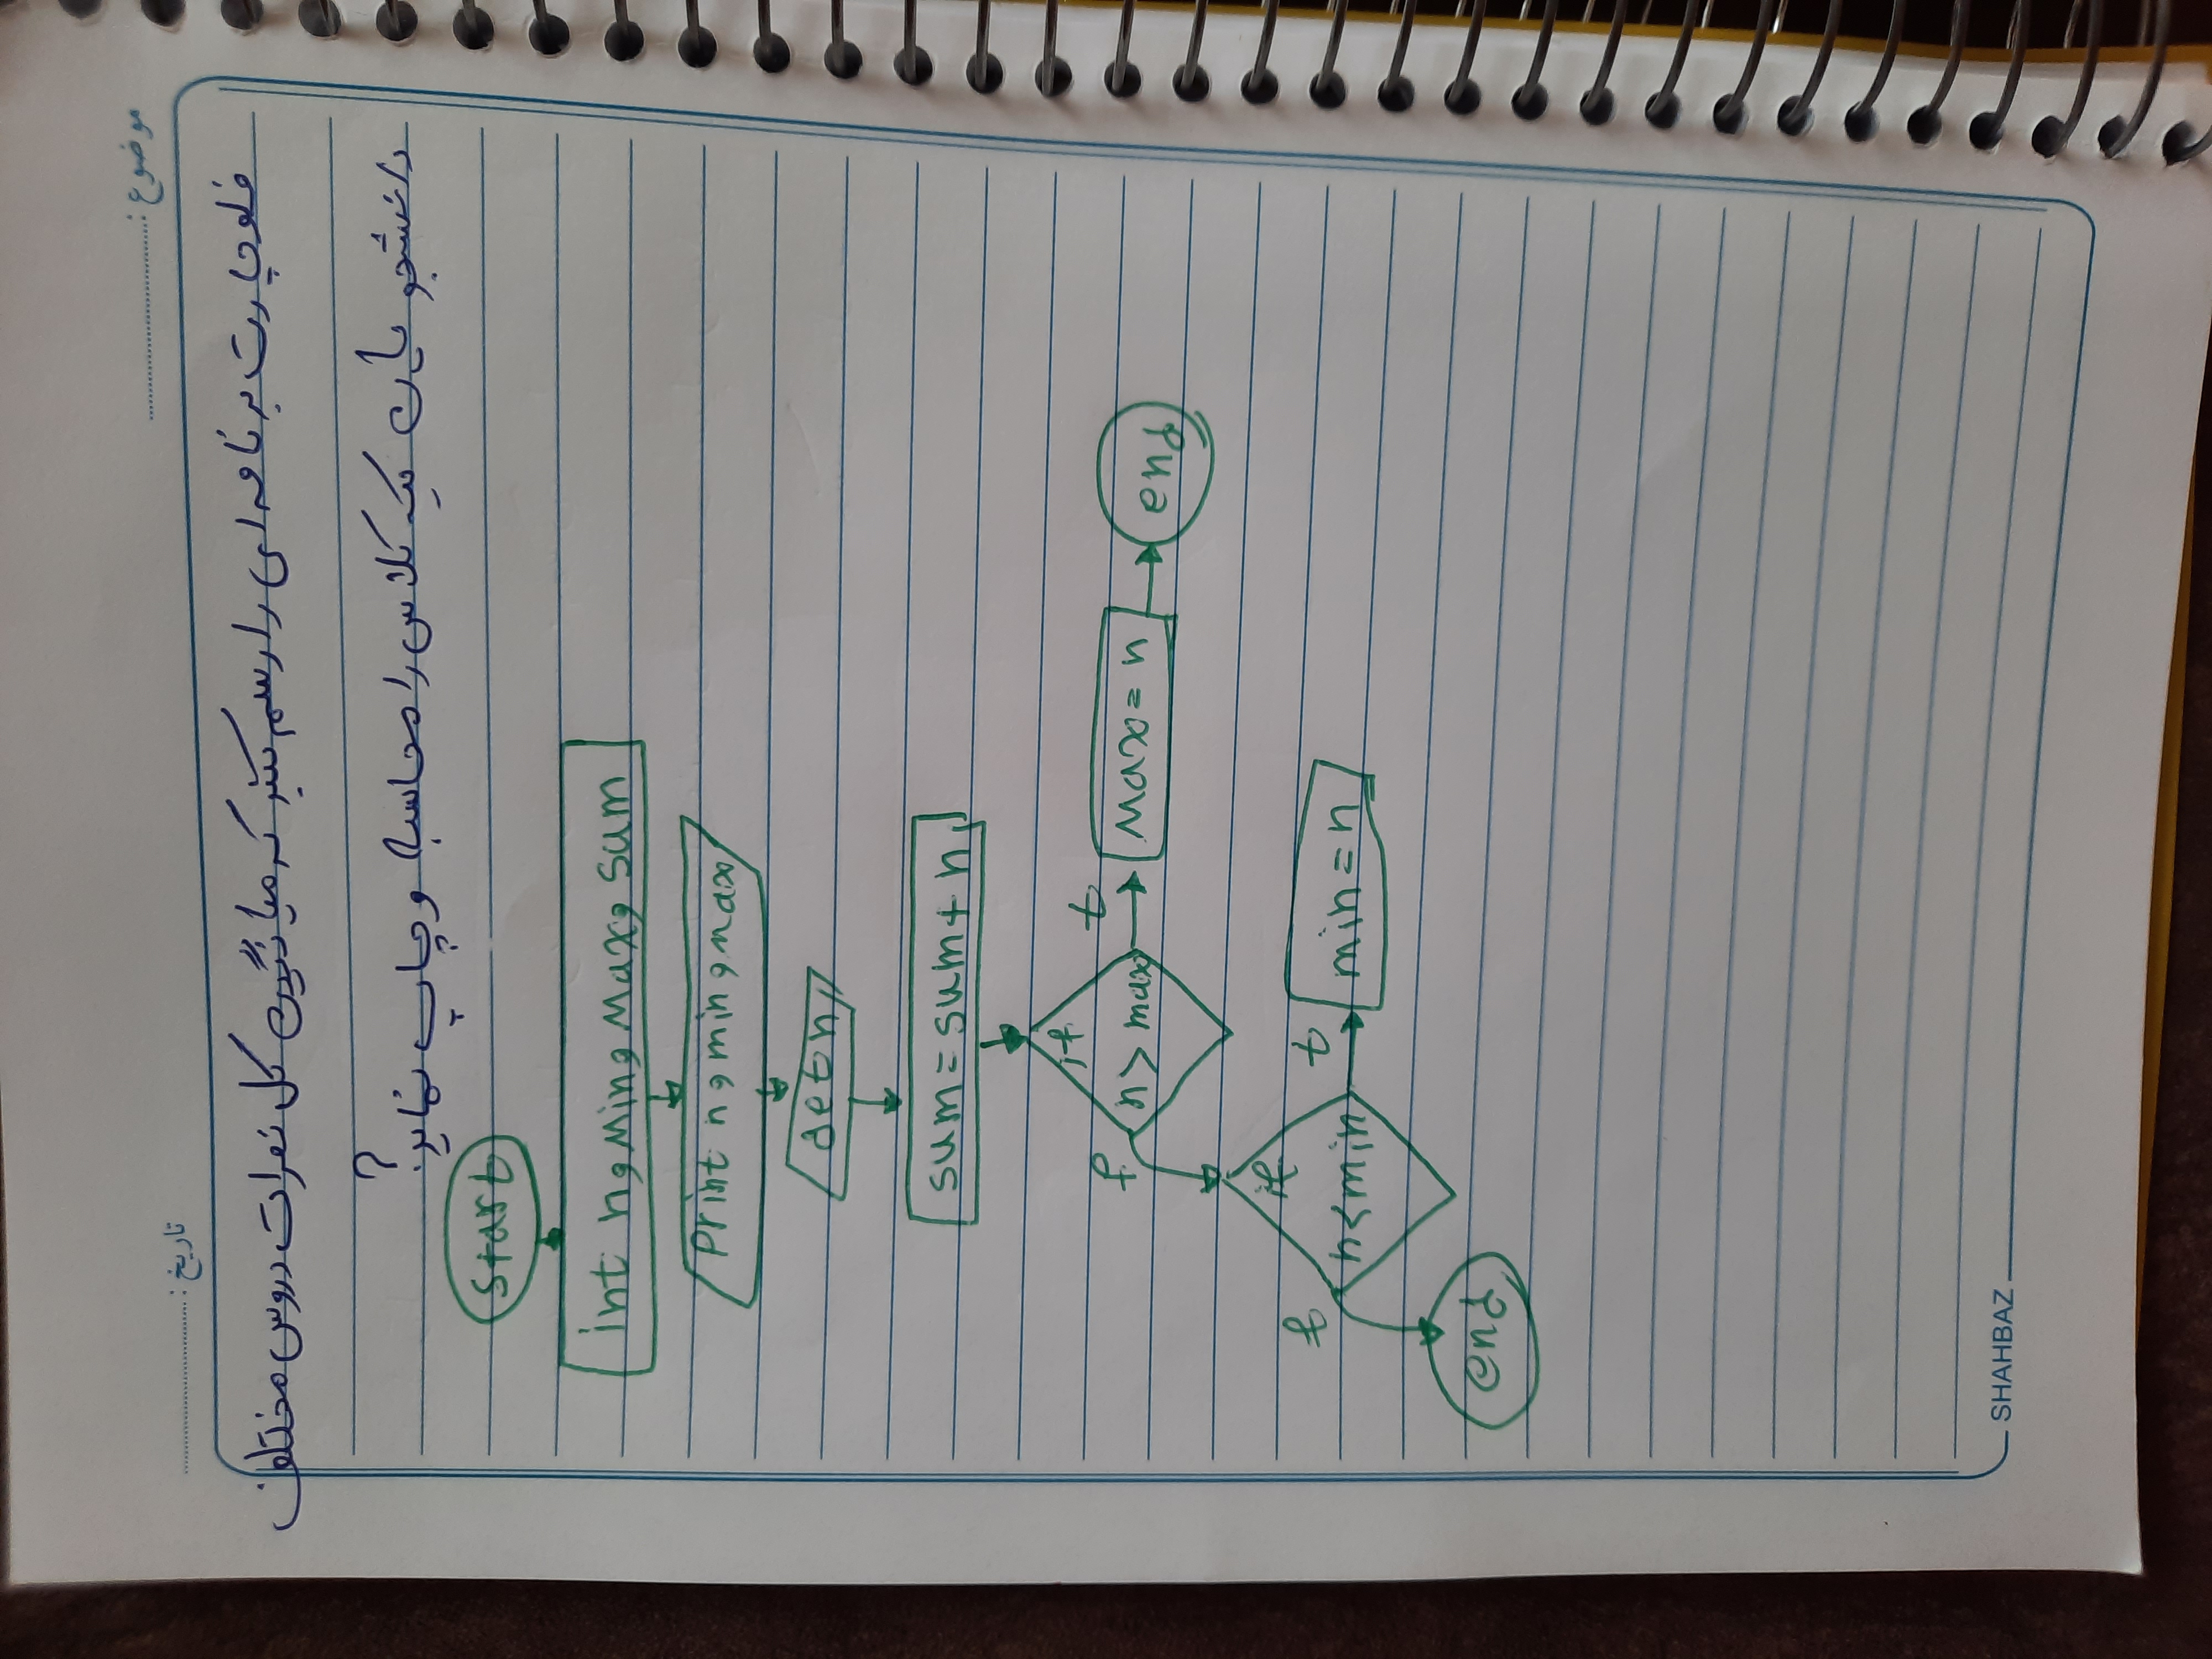 موضوع :
تاریخ :
فلوچارت برنامه ای را رسم کنید که میانگین کل نمرات دروس مختلف
دانشجویان یک کلاس را محاسبه و چاپ نماید؟
start
int n, Min, Max, sum
Print n, min, max
get n
sum = sum + n
if
n > max
t
f
Max = n
end
if
n < min
t
f
min = n
end
SHAHBAZ